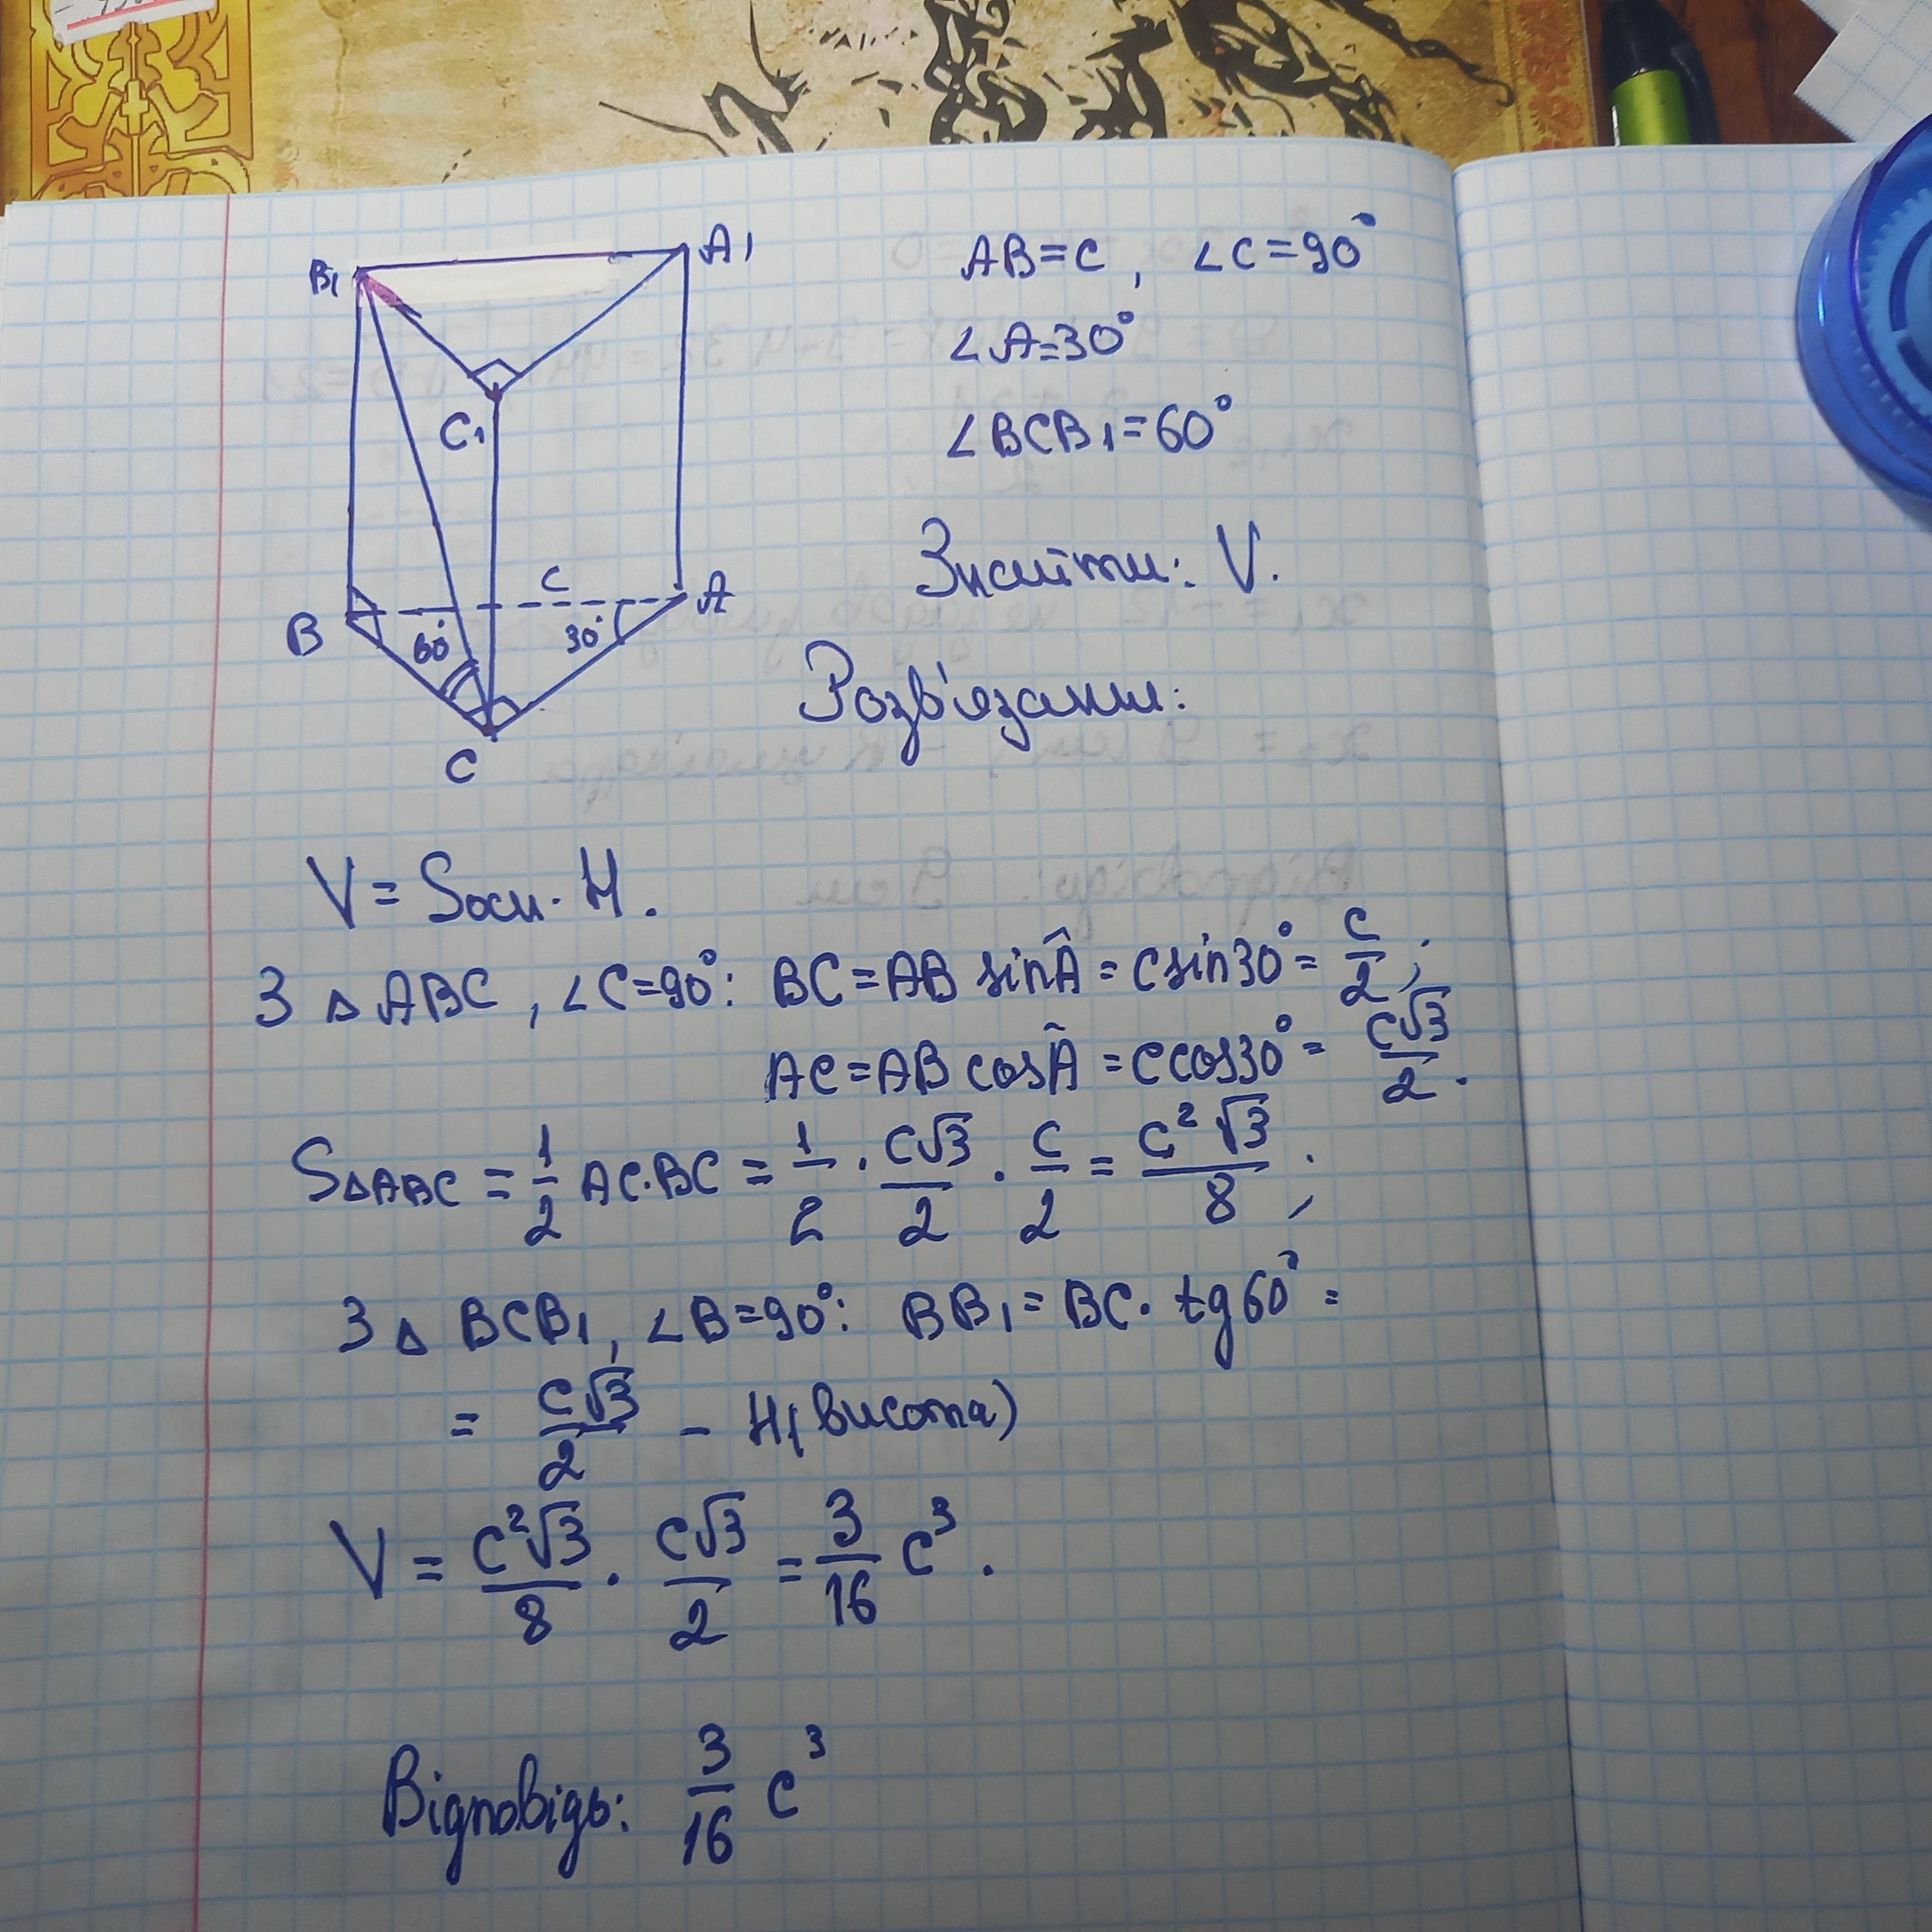 B₁ A₁
AB=c, ∠C=90°
∠A=30°
C₁
∠BCB₁=60°
Знайти: V.
c
B 60° 30° A
Розв'язання:
C
V = Sосн. · H.
З △ ABC, ∠C=90°: BC = AB sinÂ = c sin30° = c/2;
AC = AB cosÂ = c cos30° = c√3/2.
S△ABC = 1/2 AC·BC = 1/2 · c√3/2 · c/2 = c²√3/8;
З △ BCB₁, ∠B=90°: BB₁ = BC · tg60° =
= c√3/2 – H (висота)
V = c²√3/8 · c√3/2 = 3/16 c³.
Відповідь: 3/16 c³